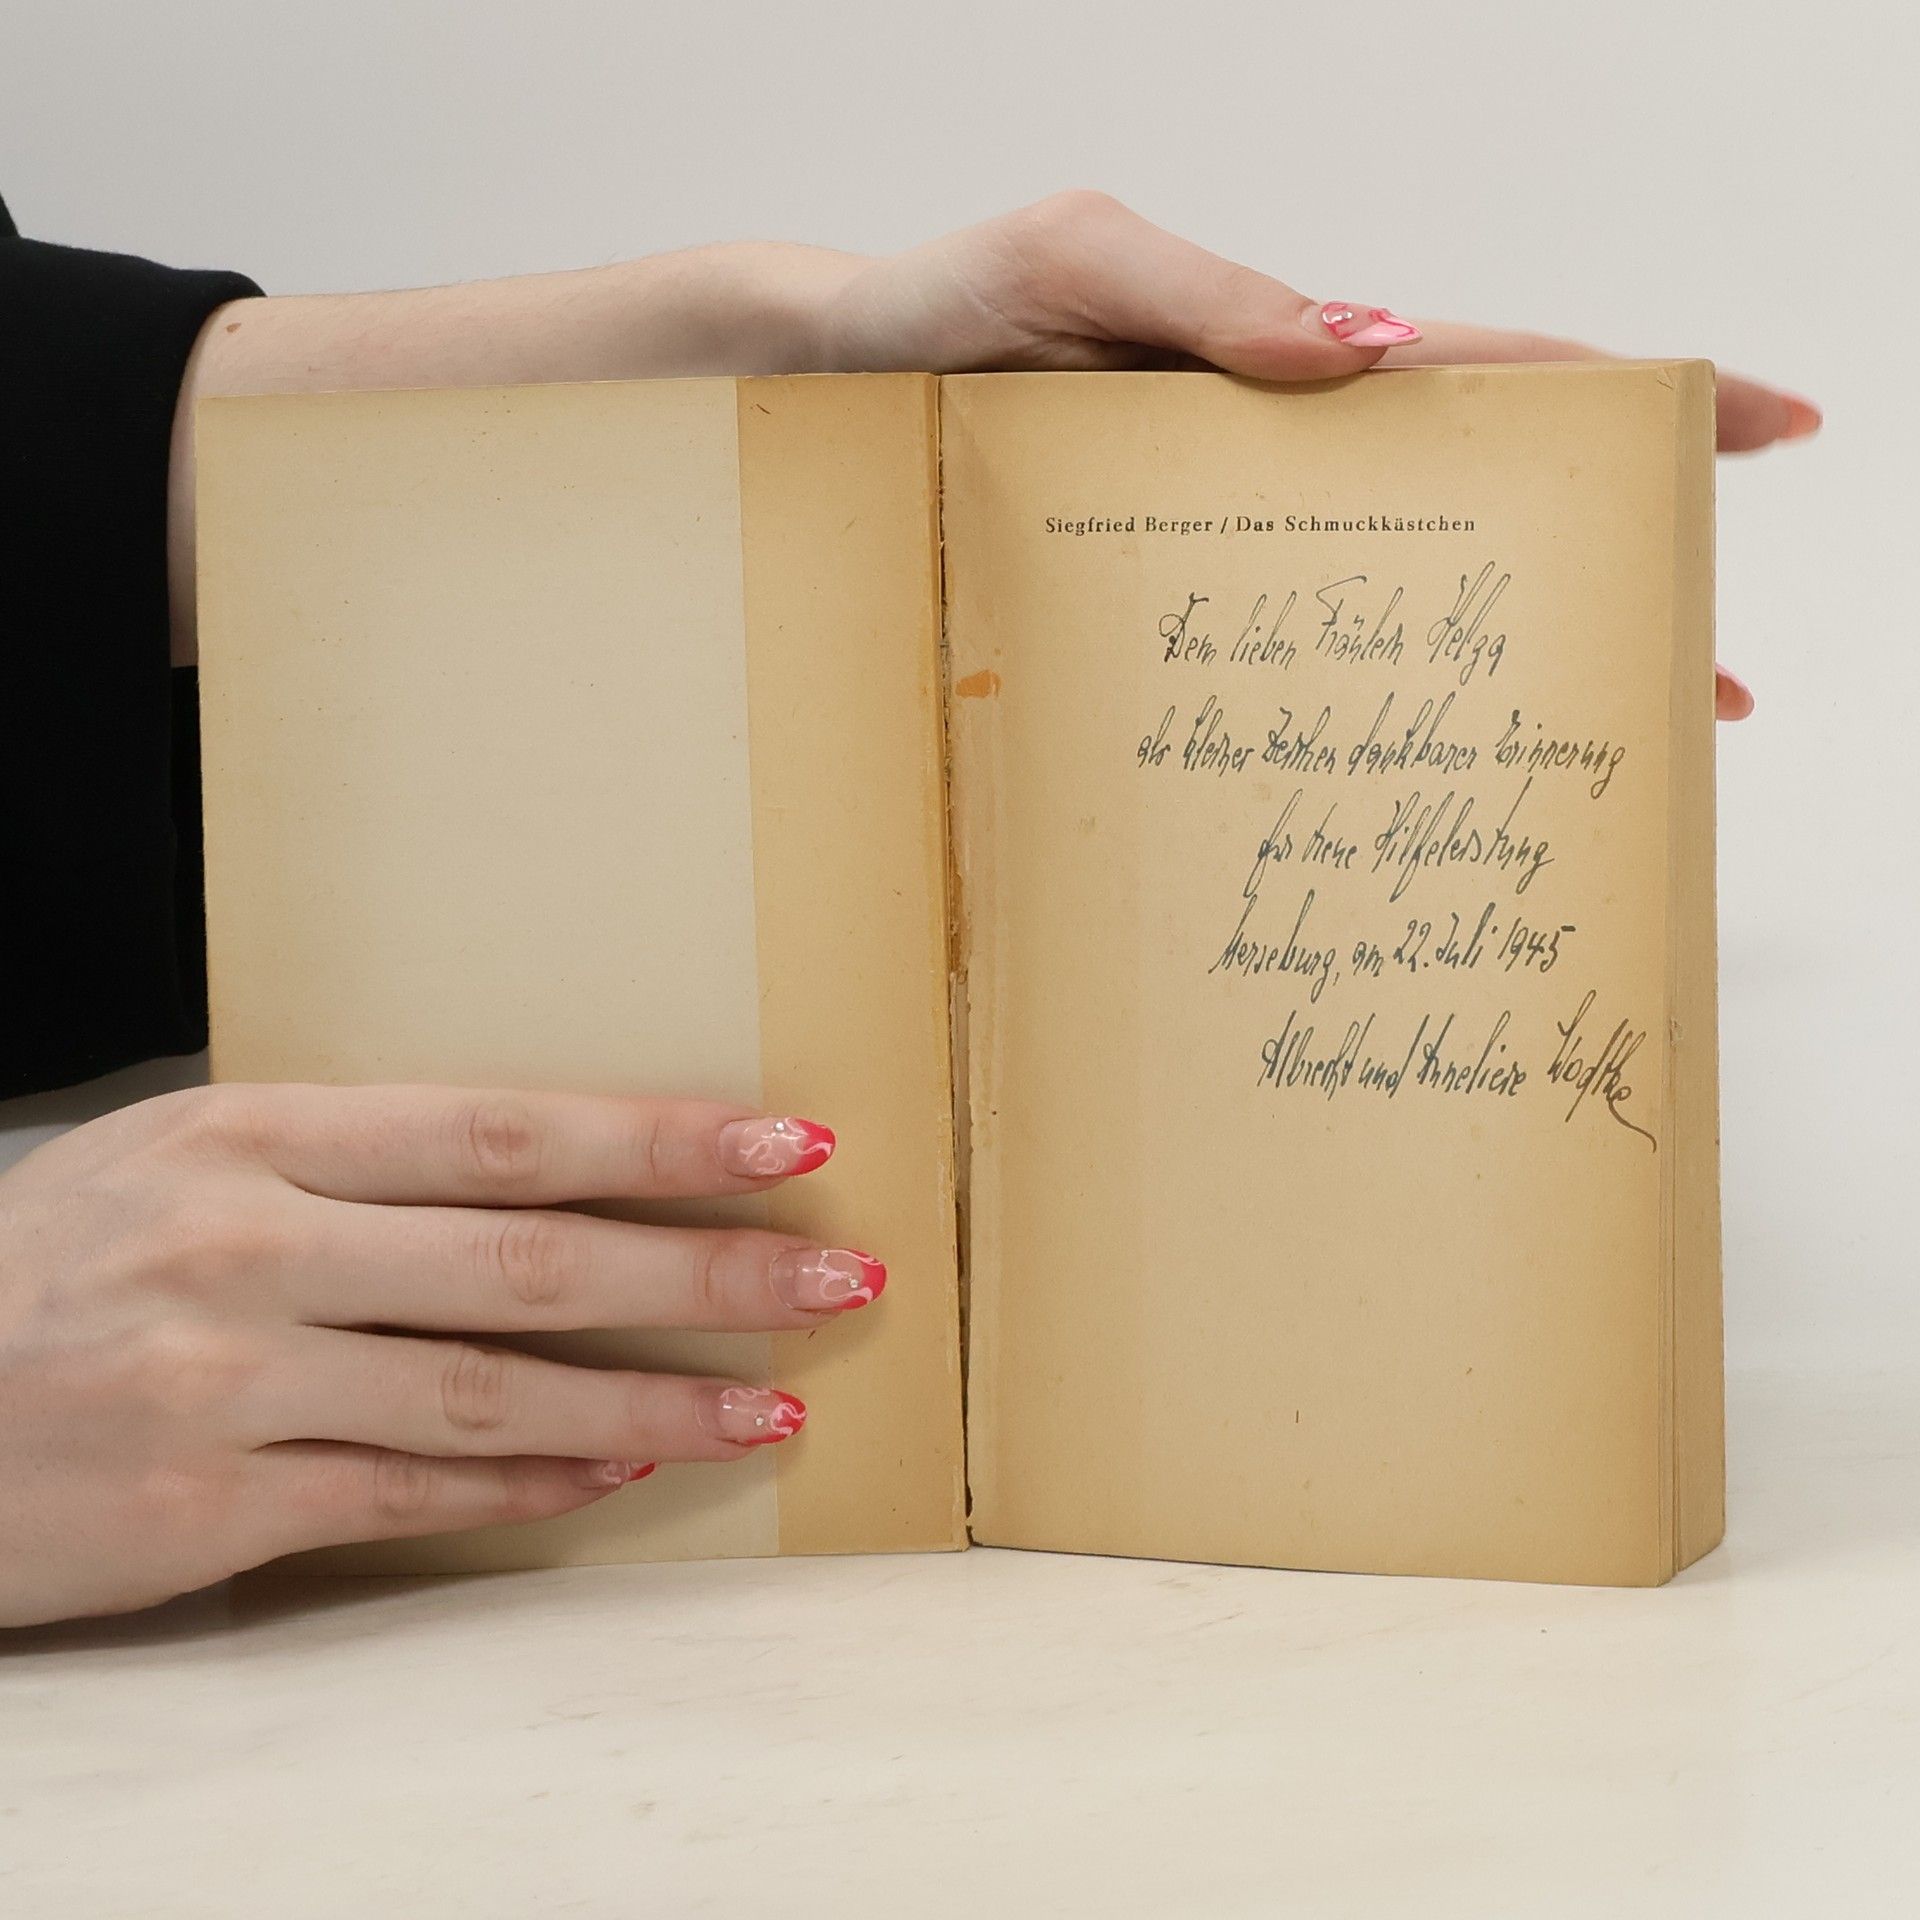 Siegfried Berger / Das Schmuckkästchen
Dem lieben Fräulein Helga
als kleines Zeichen dankbarer Erinnerung
für treue Hilfeleistung
Merseburg, am 22. Juli 1945
Albrecht und Anneliese